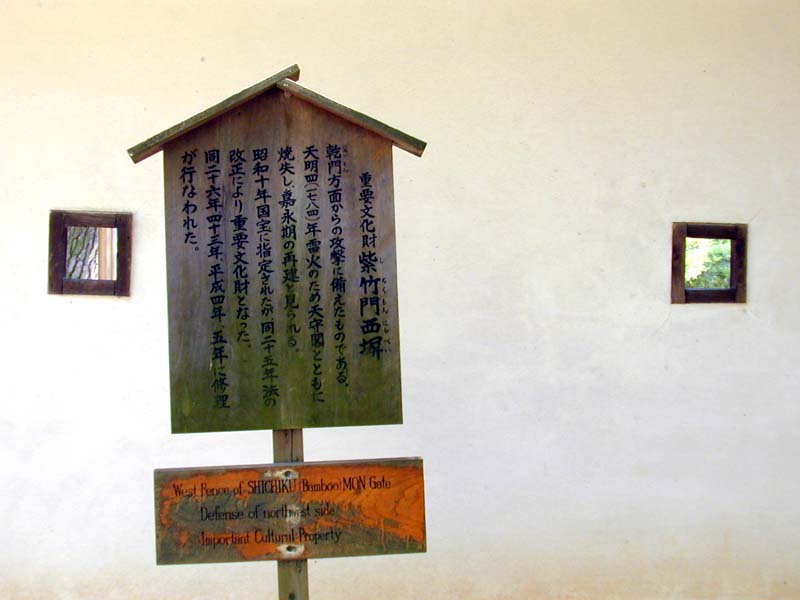 重要文化財 紫竹門西塀
しちくもんにしべい
乾門方面からの攻撃に備えたものである。
いぬいもん
天明四(一七八四)年雷火のため天守閣とともに
焼失し、嘉永期の再建と見られる。
昭和十年国宝に指定されたが、同二十五年法の
改正により重要文化財となった。
同二十六年四十三年、平成四年、五年に修理
が行なわれた。
West Fence of SHICHIKU (Bamboo) MON Gate
Defense of northwest side
Important Cultural Property